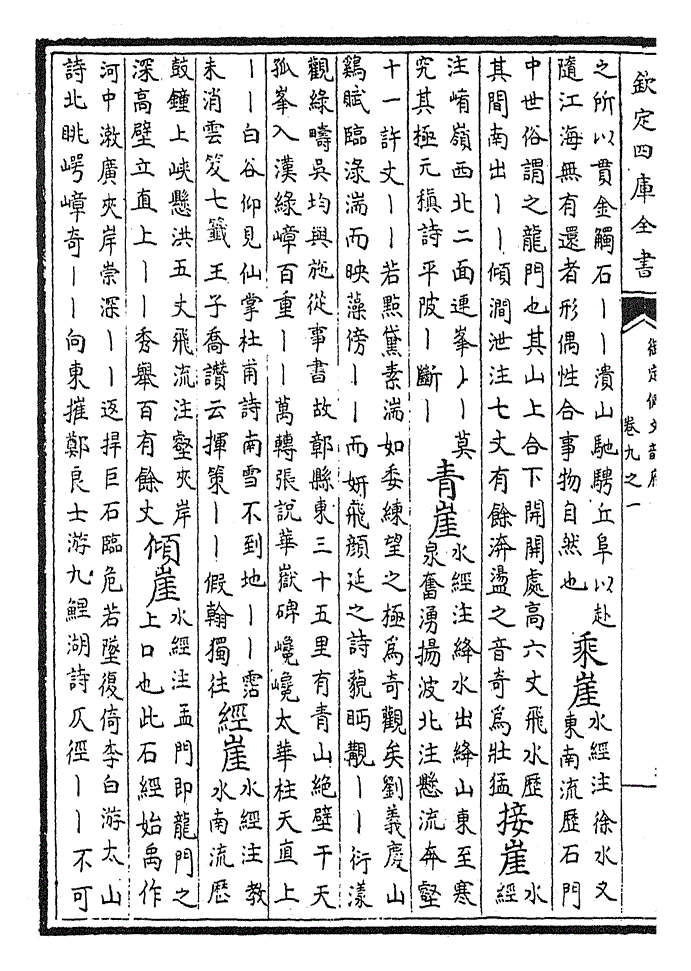 欽定四庫全書
御定佩文韻府
卷九之一
之所以貫金觸石丨丨潰山馳騁丘阜以赴
隨江海無有還者形偶性合事物自然也
乘崖
水經注徐水又
東南流歷石門
中世俗謂之龍門也其山上合下開開處高六丈飛水歷
其間南出丨丨傾澗泄注七丈有餘渀盪之音奇為壯猛
接崖
水
經
注崤嶺西北二面連峯丨丨莫
究其極元稹詩平陂丨斷丨
青崖
水經注絳水出絳山東至寒
泉奮湧揚波北注懸流奔壑
十一許丈丨丨若點黛素湍如委練望之極為奇觀矣劉義慶山
鷄賦臨淥湍而映藻傍丨丨而妍飛顏延之詩藐眄覯丨丨衍漾
觀綠疇吳均與施從事書故鄣縣東三十五里有青山絶壁干天
孤峯入漢綠嶂百重丨丨萬轉張說華嶽碑巉巉太華柱天直上
丨丨白谷仰見仙掌杜甫詩南雪不到地丨丨霑
未消雲笈七籤王子喬讚云揮策丨丨假翰獨往
經崖
水經注教
水南流歷
鼓鐘上峽懸洪五丈飛流注壑夾岸
深高壁立直上丨丨秀舉百有餘丈
傾崖
水經注孟門即龍門之
上口也此石經始禹作
河中漱廣夾岸崇深丨丨返捍巨石臨危若墜復倚李白游太山
詩北眺崿嶂奇丨丨向東摧鄭良士游九鯉湖詩仄徑丨丨不可